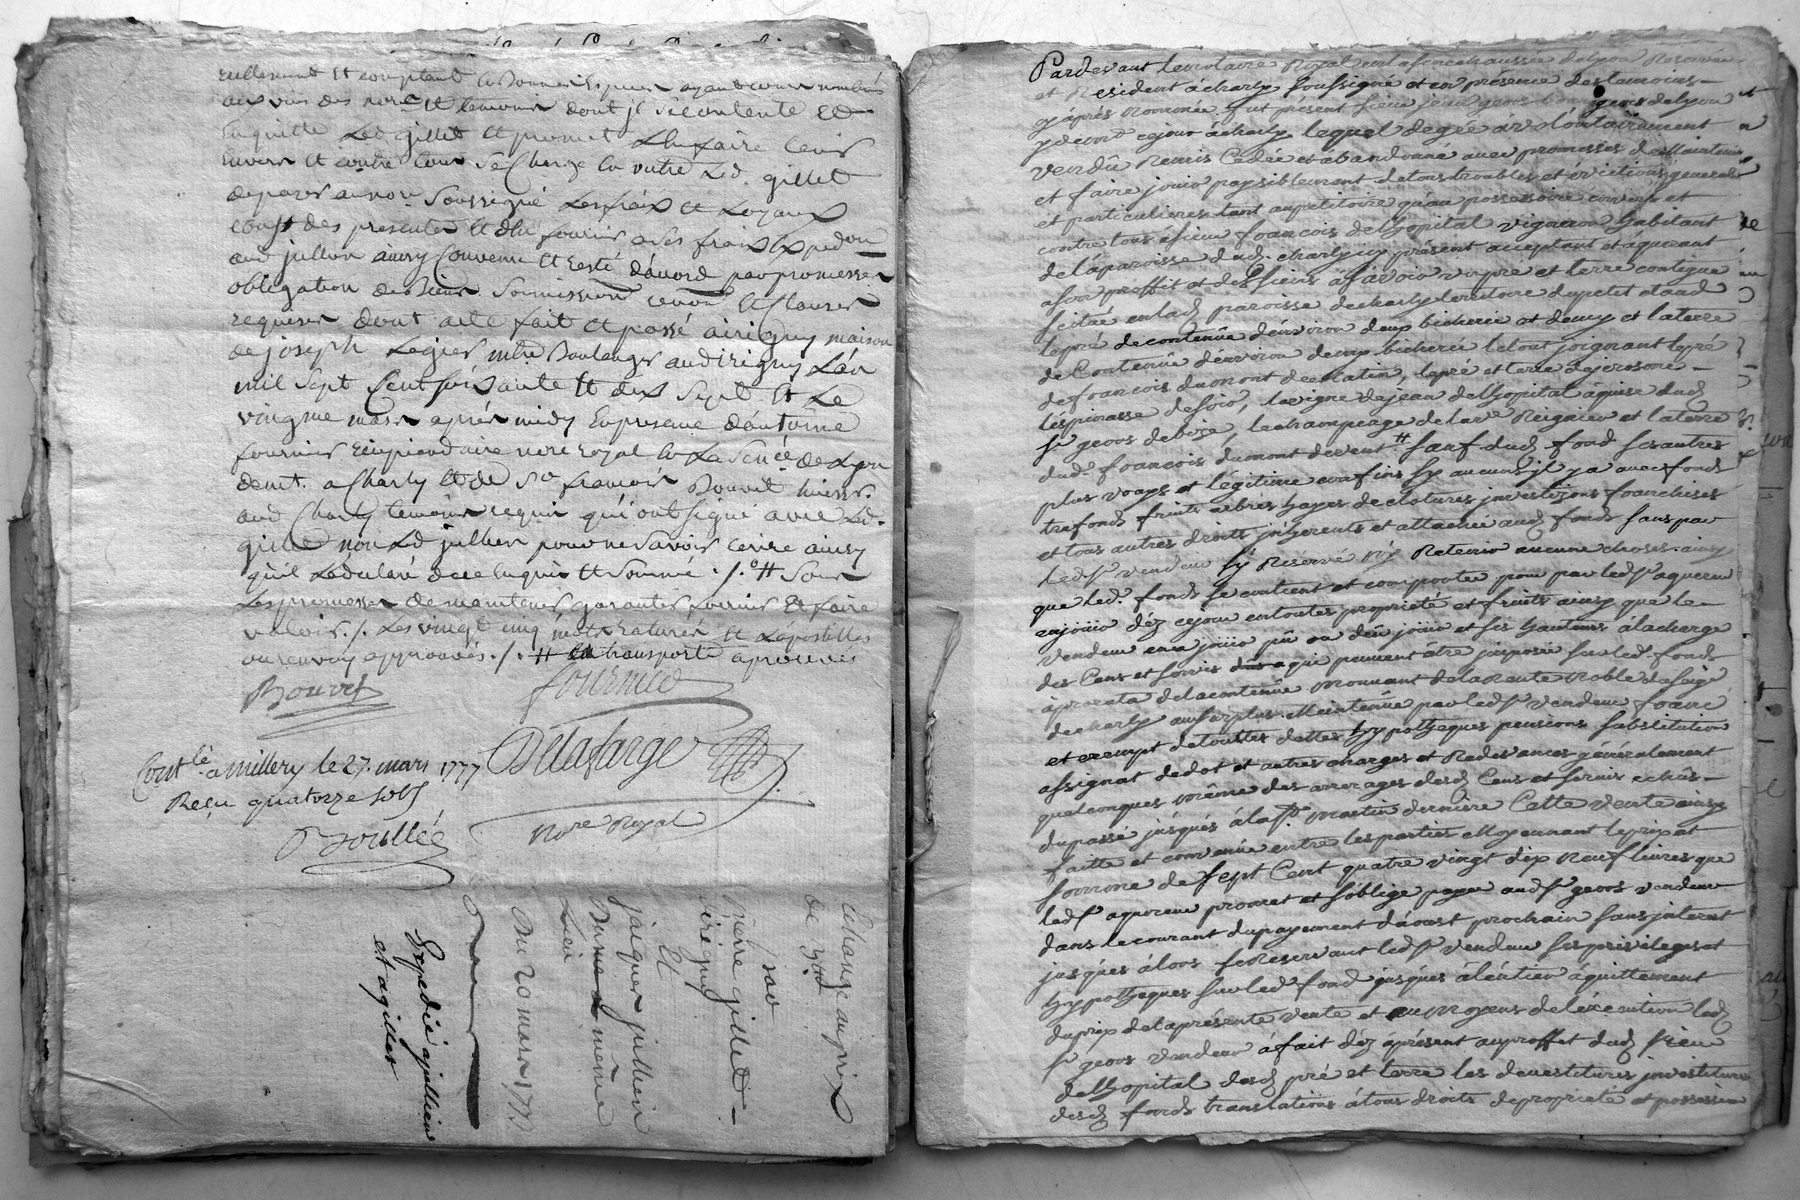 réellement et comptant
aux vües des nore et temoins dont il se contente et
En quitte Led gillet et promet
Envers et contre tous se Charge en outre Led. gillet
de payer au nore Soussigné Les frais et Loyaux
Coust des presentes et
aud jullien ainsy Convenu et resté d'accord par promesses
obligation de Biens Soumissions renon et Clauses
requises dont acte fait et passé a irigny maison
de joseph Legier mtre Boulanger aud irigny L'an
mil sept Cent soixante et dix Sept et Le
vingt me mars après midy En presence d'antoine
fournier
demt. a Charly et de Sr françois Bouvet huissr.
aud Charly temoins requis qui ont signé avec Led.
gillet non Led jullien pour ne Savoir écrire ainsy
qu'il L'a declaré de ce enquis et Sommé ./. # Sous
Les promesses de maintenir, garantir, fournir et faire
valoir ./. Les vingt cinq mots raturés et L'apostille
ou renvoy approuvés ./. # transporte aprouvé
Bouvet fournier
Delafarge
nore Royal
Contlé a millery le 27. mars 1777
Reçu quatorze sols
Boullée
Echange au prix
de 30#
par
pierre gillet
d'irigny
Et
jacques jullien
Du meme
Lieu
Du 20 mars 1777
Expedié a jullien
et a gillet
Pardevant le notaire Royal en la senechaussée de lyon Reservé
et Résident à charly soussigné et en présence des temoins
cy après nommés, fut présent sieur jean geoos Bourgeois de lyon
y demt. ce jour à charly, lequel de gré à volontairement
vendû Remis Cédé et abandonné avec promesses de maintenir
et faire jouir paysiblement de tous troubles et évictions générales
et particulieres tant au petitoire qu'au possessoire envers et
contre tous à sieur françois de lhopital vigneron habitant
de la paroisse dud. charly cy présent acceptant et aquerant
à son proffit et des siens à sçavoir un pré et terre contigue
scitué en lad. paroisse de charly territoire du petit etard
le pré de contenüe d'environ deux bicheries et demy et la terre
de Contenüe d'environ deux bicherées le tout joignant le pré
de françois dumont le pré et terre
lespinasse de soir, la vigne de jean de lhopital aquise dud
sr geoos de bize, le champeage de la ve Reignier et la terre
dud. françois dumont de vent # sauf dud fond ses autres
plus vrays et légitime confins sy aucuns jl ya avec fond
trefonds fruits arbres hayes de clotures jnvestizons franchises
et tous autres droits jnherents et attachés aud fonds sans par
led sr vendeur sy Réservé ny Retenir aucune choses. ainsy
que led. fonds se contient et comporte pour par led sr aquereur
en jouir déz ce jour en toutes propriété et fruits ainsy que le
vendeur en a joüis pû ou dû joüir et ses hauteurs à la charge
des Cens et servis dûs a qui peuvent être jmposés sur led. fond
a prorata de la contenüe mouvant de la rante noble
de charly au surplus Maintenüe par led sr vendeur franc
et exempt de touttes dettes hypotheques pensions substitution
assignat de dot et autres charges et Redevances généralement
quelconques même des arrerages desd. Cens et servis echûs
du passé jusqués à la St. martin derniere Cette vente ainsy
faitte et convenüe entre les parties Moyennant le prix et
somme de sept Cent quatre vingt dix neuf livres que
led sr aquereur promet et s'oblige payer aud sr geoos vendeur
dans le courant du payement d'aoust prochain sans jnterest
jusqués à lors se Reservant led sr vendeur ses privileges et
hypotheques sur led. fond jusqués à l'entier aquittement
du prix de la présente vente et au Moyens de l'execution led
sr geoos vendeur a fait déz à présent au proffit dud sieur
de lhopital desd pré et terre les devestitures jnvestitures
desd. fonds translations à tous droits de proprieté et possession